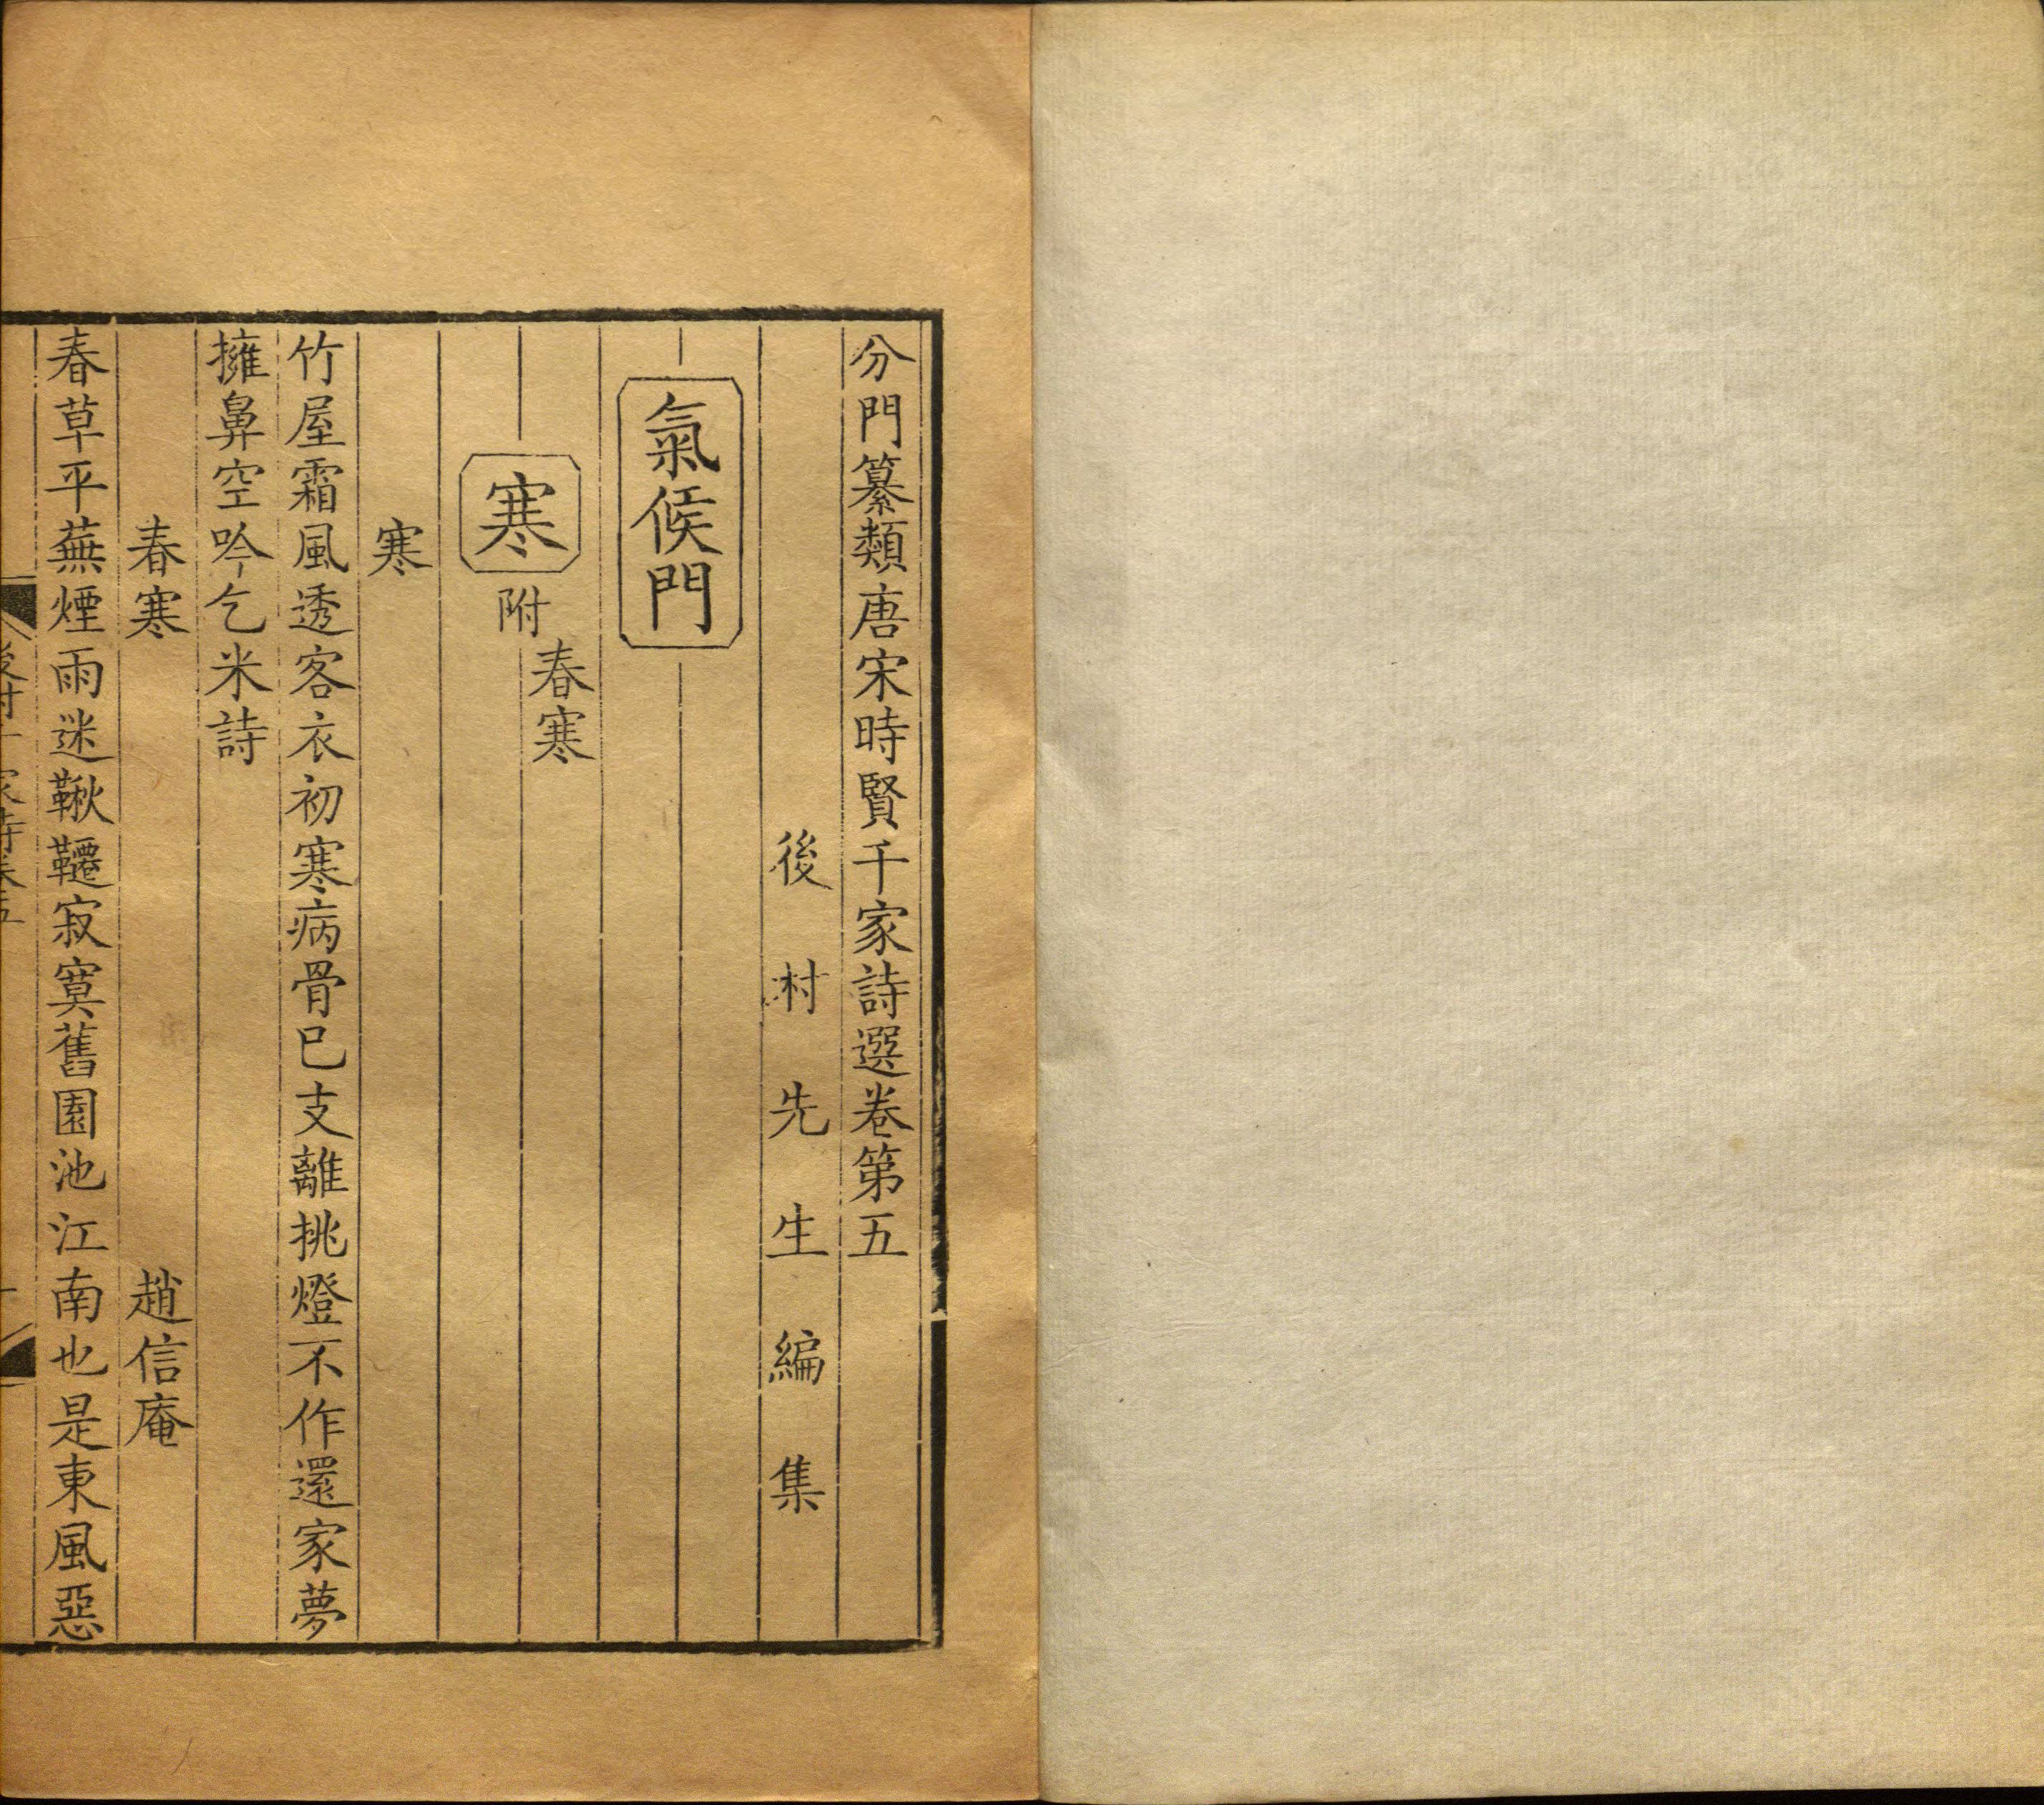 分門纂類唐宋時賢千家詩選卷第五
後村先生編集
氣候門
春寒
寒附
寒
竹屋霜風透客衣初寒病骨巳支離挑燈不作還家夢
擁鼻空吟乞米詩
春寒　趙信庵
春草平蕪煙雨迷鞦韆寂寞舊園池江南也是東風惡